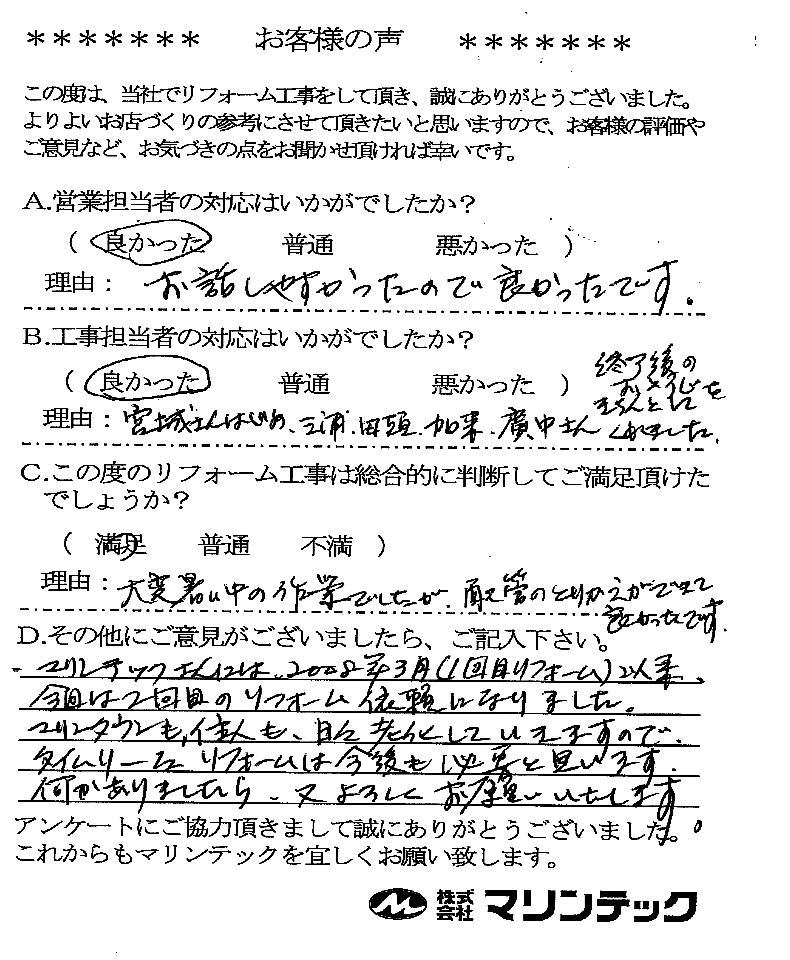 ******* お客様の声 *******
この度は、当社でリフォーム工事をして頂き、誠にありがとうございました。
よりよいお店づくりの参考にさせて頂きたいと思いますので、お客様の評価や
ご意見など、お気づきの点をお聞かせ頂ければ幸いです。
A.営業担当者の対応はいかがでしたか?
( 良かった 普通 悪かった )
理由: お話しやすかったので良かったです.
B.工事担当者の対応はいかがでしたか?
( 良かった 普通 悪かった )
理由: 宮城さんはじめ、三浦、田頭、加来、廣中さん
終了後の
おそうじを
きちんとして
くれました.
C.この度のリフォーム工事は総合的に判断してご満足頂けた
でしょうか?
( 満足 普通 不満 )
理由: 大変暑い中の作業でしたが、配管のとりかえができて
良かったです.
D.その他にご意見がございましたら、ご記入下さい。
マリンテックさんには、2008年3月(1回目リフォーム)以来、
今回は2回目のリフォーム依頼になりました。
マリンタウンも,住人も、日々老化していきますので、
タイムリーなリフォームは今後も必要と思います.
何かありましたら、又よろしくお願いいたします
アンケートにご協力頂きまして誠にありがとうございました。
これからもマリンテックを宜しくお願い致します。
M 株式会社 マリンテック